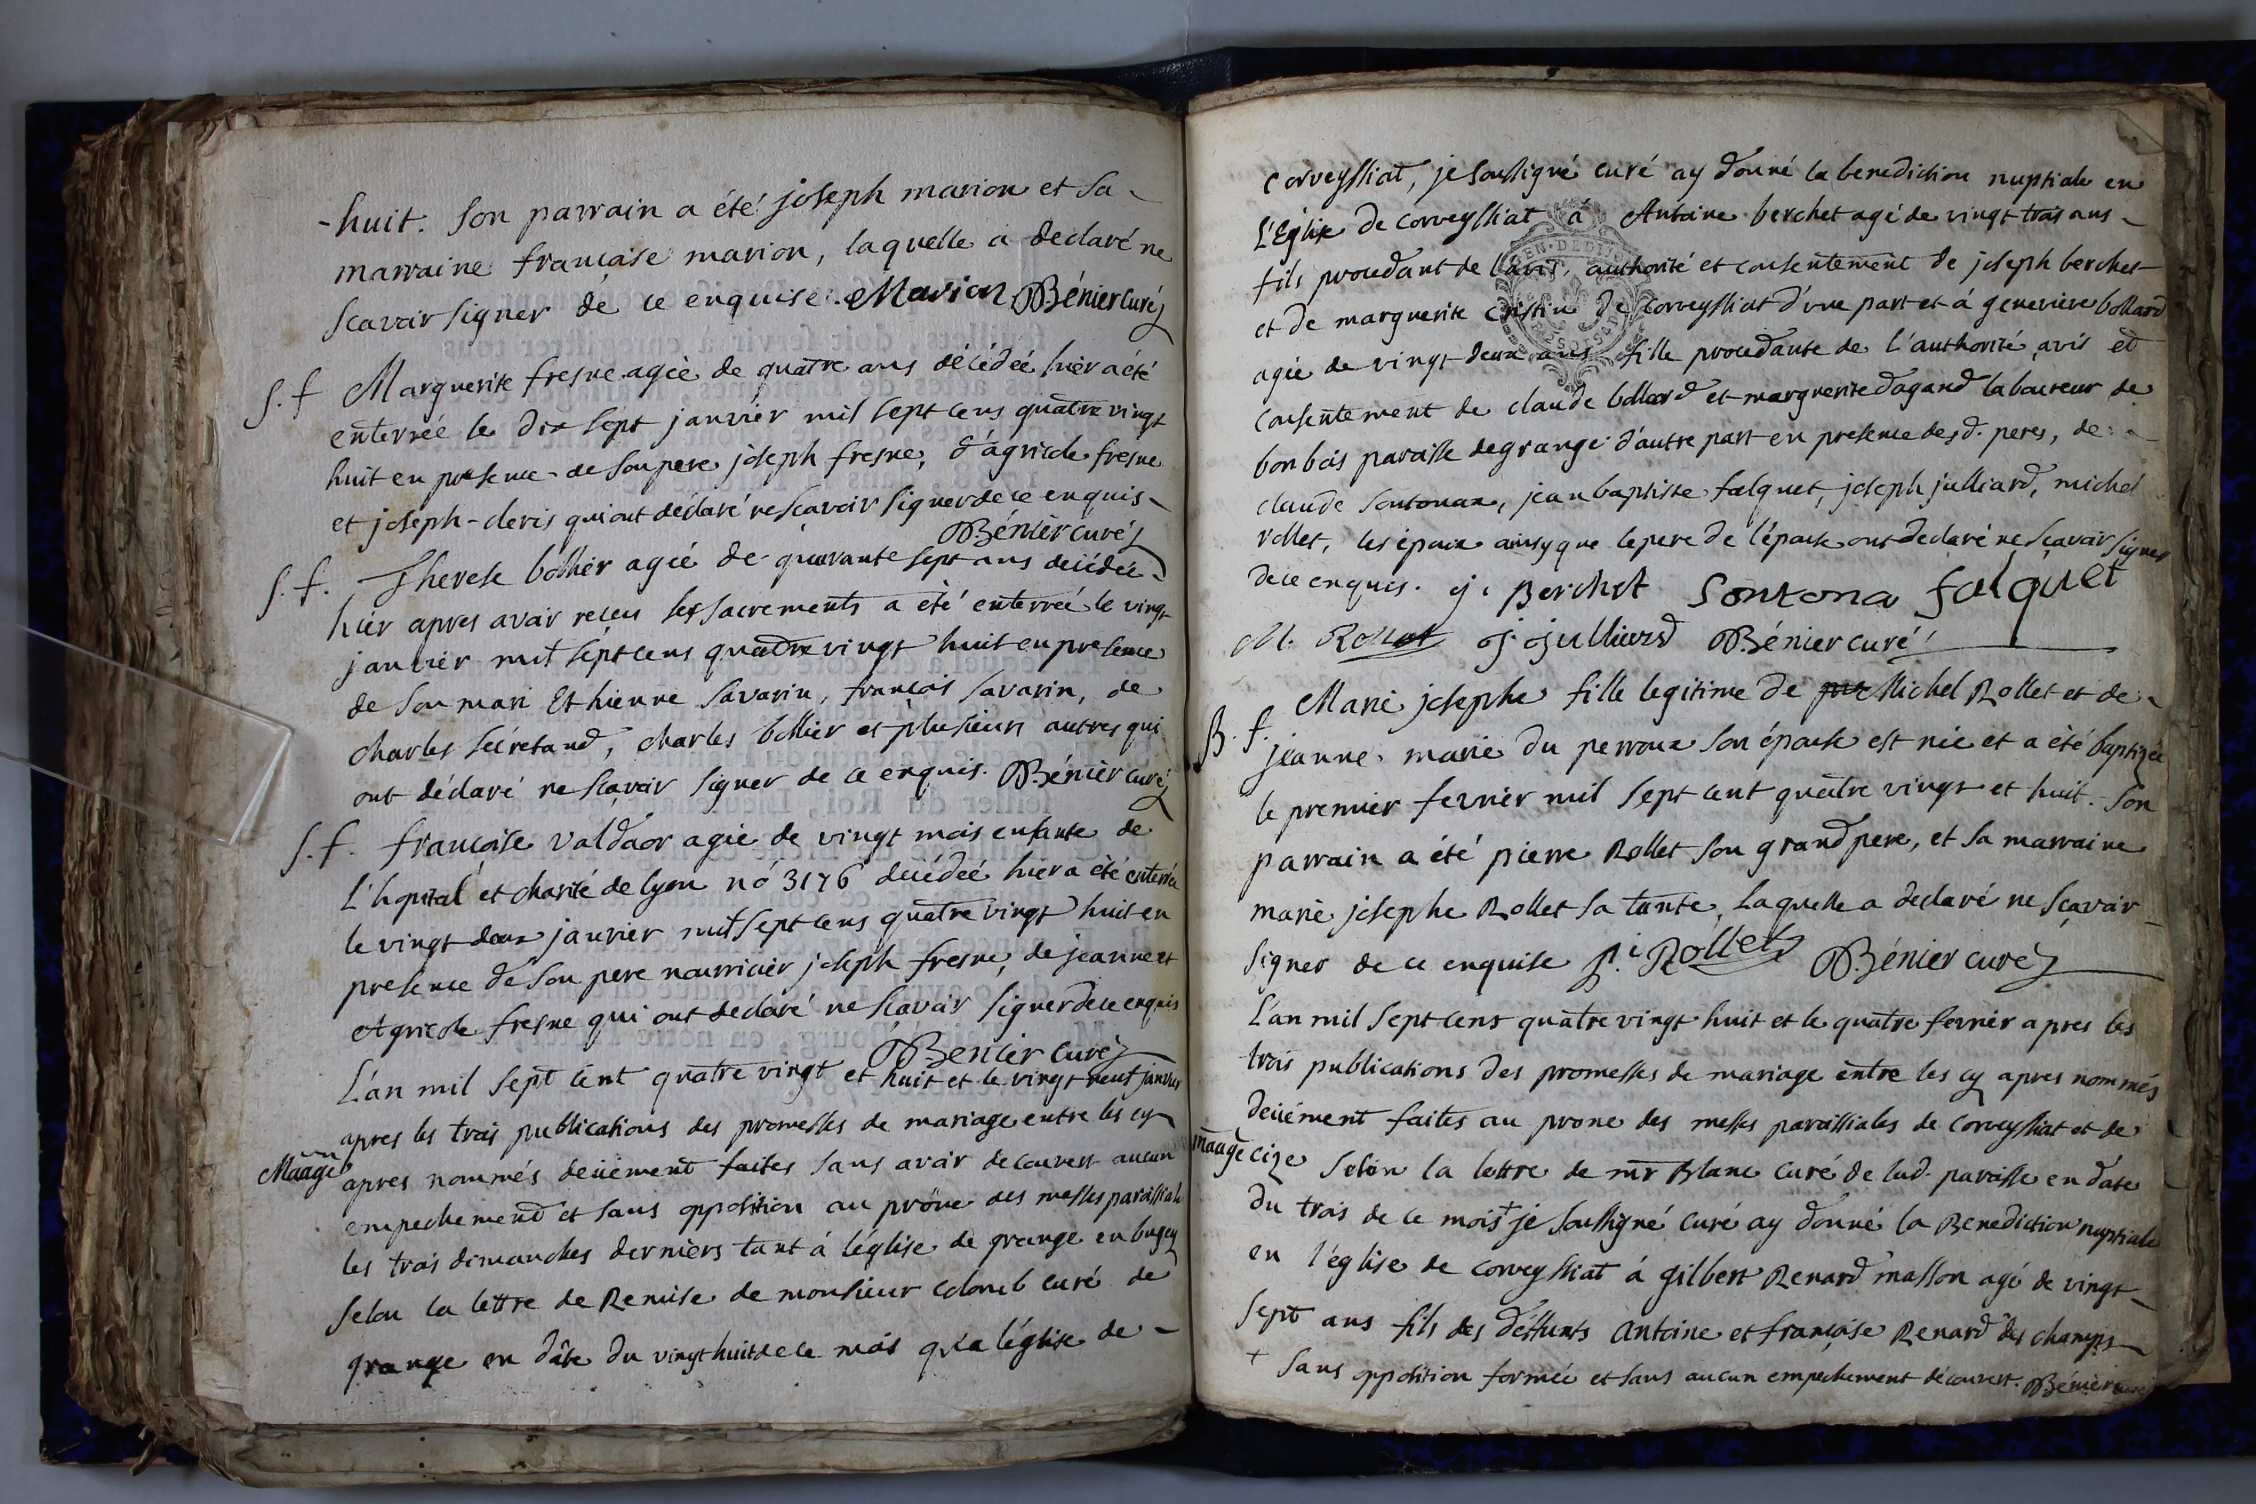 -huit. son parrain a été joseph marion et sa
marraine francoise marion, laquelle a declaré ne
scavoir signer de ce enquise. Marion Bénier curé
S. f Marguerite fresne agée de quatre ans décédée hier a été
enterrée le dix sept janvier mil sept cens quatre vingt
huit en presence de son pere joseph fresne, d'agricole fresne
et joseph-cleris qui ont déclaré ne scavoir signer de ce enquis
Bénier curé
S. f. Therese bollier agée de quarante sept ans décédée
hier apres avoir reçeu les sacrements a été enterrée le vingt
janvier mil sept cens quatre vingt huit en presence
de son mari Ethienne Savarin, francois savarin, de
charles secretand, charles bollier et plusieurs autres qui
ont déclaré ne scavoir signer de ce enquis. Bénier curé
S. f. francoise valdaor agée de vingt mois enfante de
L'hopital et charité de lyon nó 3176 decédée hier a été enterrée
le vingt deux janvier mil sept cens quatre vingt huit en
presence de son pere nourricier joseph fresne, de jeanne et
Agricole fresne qui ont declaré ne sçavoir signer de ce enquis
Benier curé
L'an mil sept cent quatre vingt et huit et le vingt neuf janvier
apres les trois publications des promesses de mariage entre les cy
Maage apres nommés deüement faites sans avoir decouvert aucun
empechement et sans opposition au prône des messes paroissiales
les trois dimanches derniers tant à l'église de grange en bugey
selon la lettre de Remise de monsieur colomb curé de
grange en dâte du vingt huit de ce mois qu'a l'église de
corveyssiat, je soussigné curé ay donné la benediction nuptiale en
L'Eglise de corveyssiat á Antoine berchet agé de vingt trois ans
fils procedant de l'avis, authorité et consentement de joseph berchet
et de marguerite cristin de corveyssiat d'une part et á genevieve bollard
agée de vingt deux ans fille procedante de l'authorité, avis et
consentement de claude bollard et marguerite dagand laboureur de
bonbois paroisse de grange d'autre part en presence desd. peres, de
claude sontonax, jean baptiste falquet, joseph julliard, michel
rollet, les époux ainsy que le pere de l'épouse ont declaré ne sçavoir signer
de ce enquis. j. Berchet Sontona falquet
M. Rollet j. julliard Bénier curé
B. f. Marie josephe fille legitime de Michel Rollet et de
jeanne marie du perroux son épouse est née et a été baptizée
le premier fevrier mil sept cent quatre vingt et huit. son
parrain a été pierre Rollet son grand pere, et sa marraine
marie josephe Rollet sa tante, laquelle a declaré ne sçavoir
signer de ce enquise p. Rollet Bénier curé
L'an mil sept cens quatre vingt huit et le quatre fevrier apres les
trois publications des promesses de mariage entre les cy apres nommés
deüement faites au prone des messes paroissiales de corveyssiat et de
maage cize selon la lettre de mr Blanc curé de lad. paroisse en date
du trois de ce mois + je soussigné curé ay donné la Benediction nuptiale
en l'église de corveyssiat á gilbert Renard masson agé de vingt
sept ans fils des deffunts antoine et francoise Renard des champs
+ sans opposition formée et sans aucun empechement découvert. Bénier curé